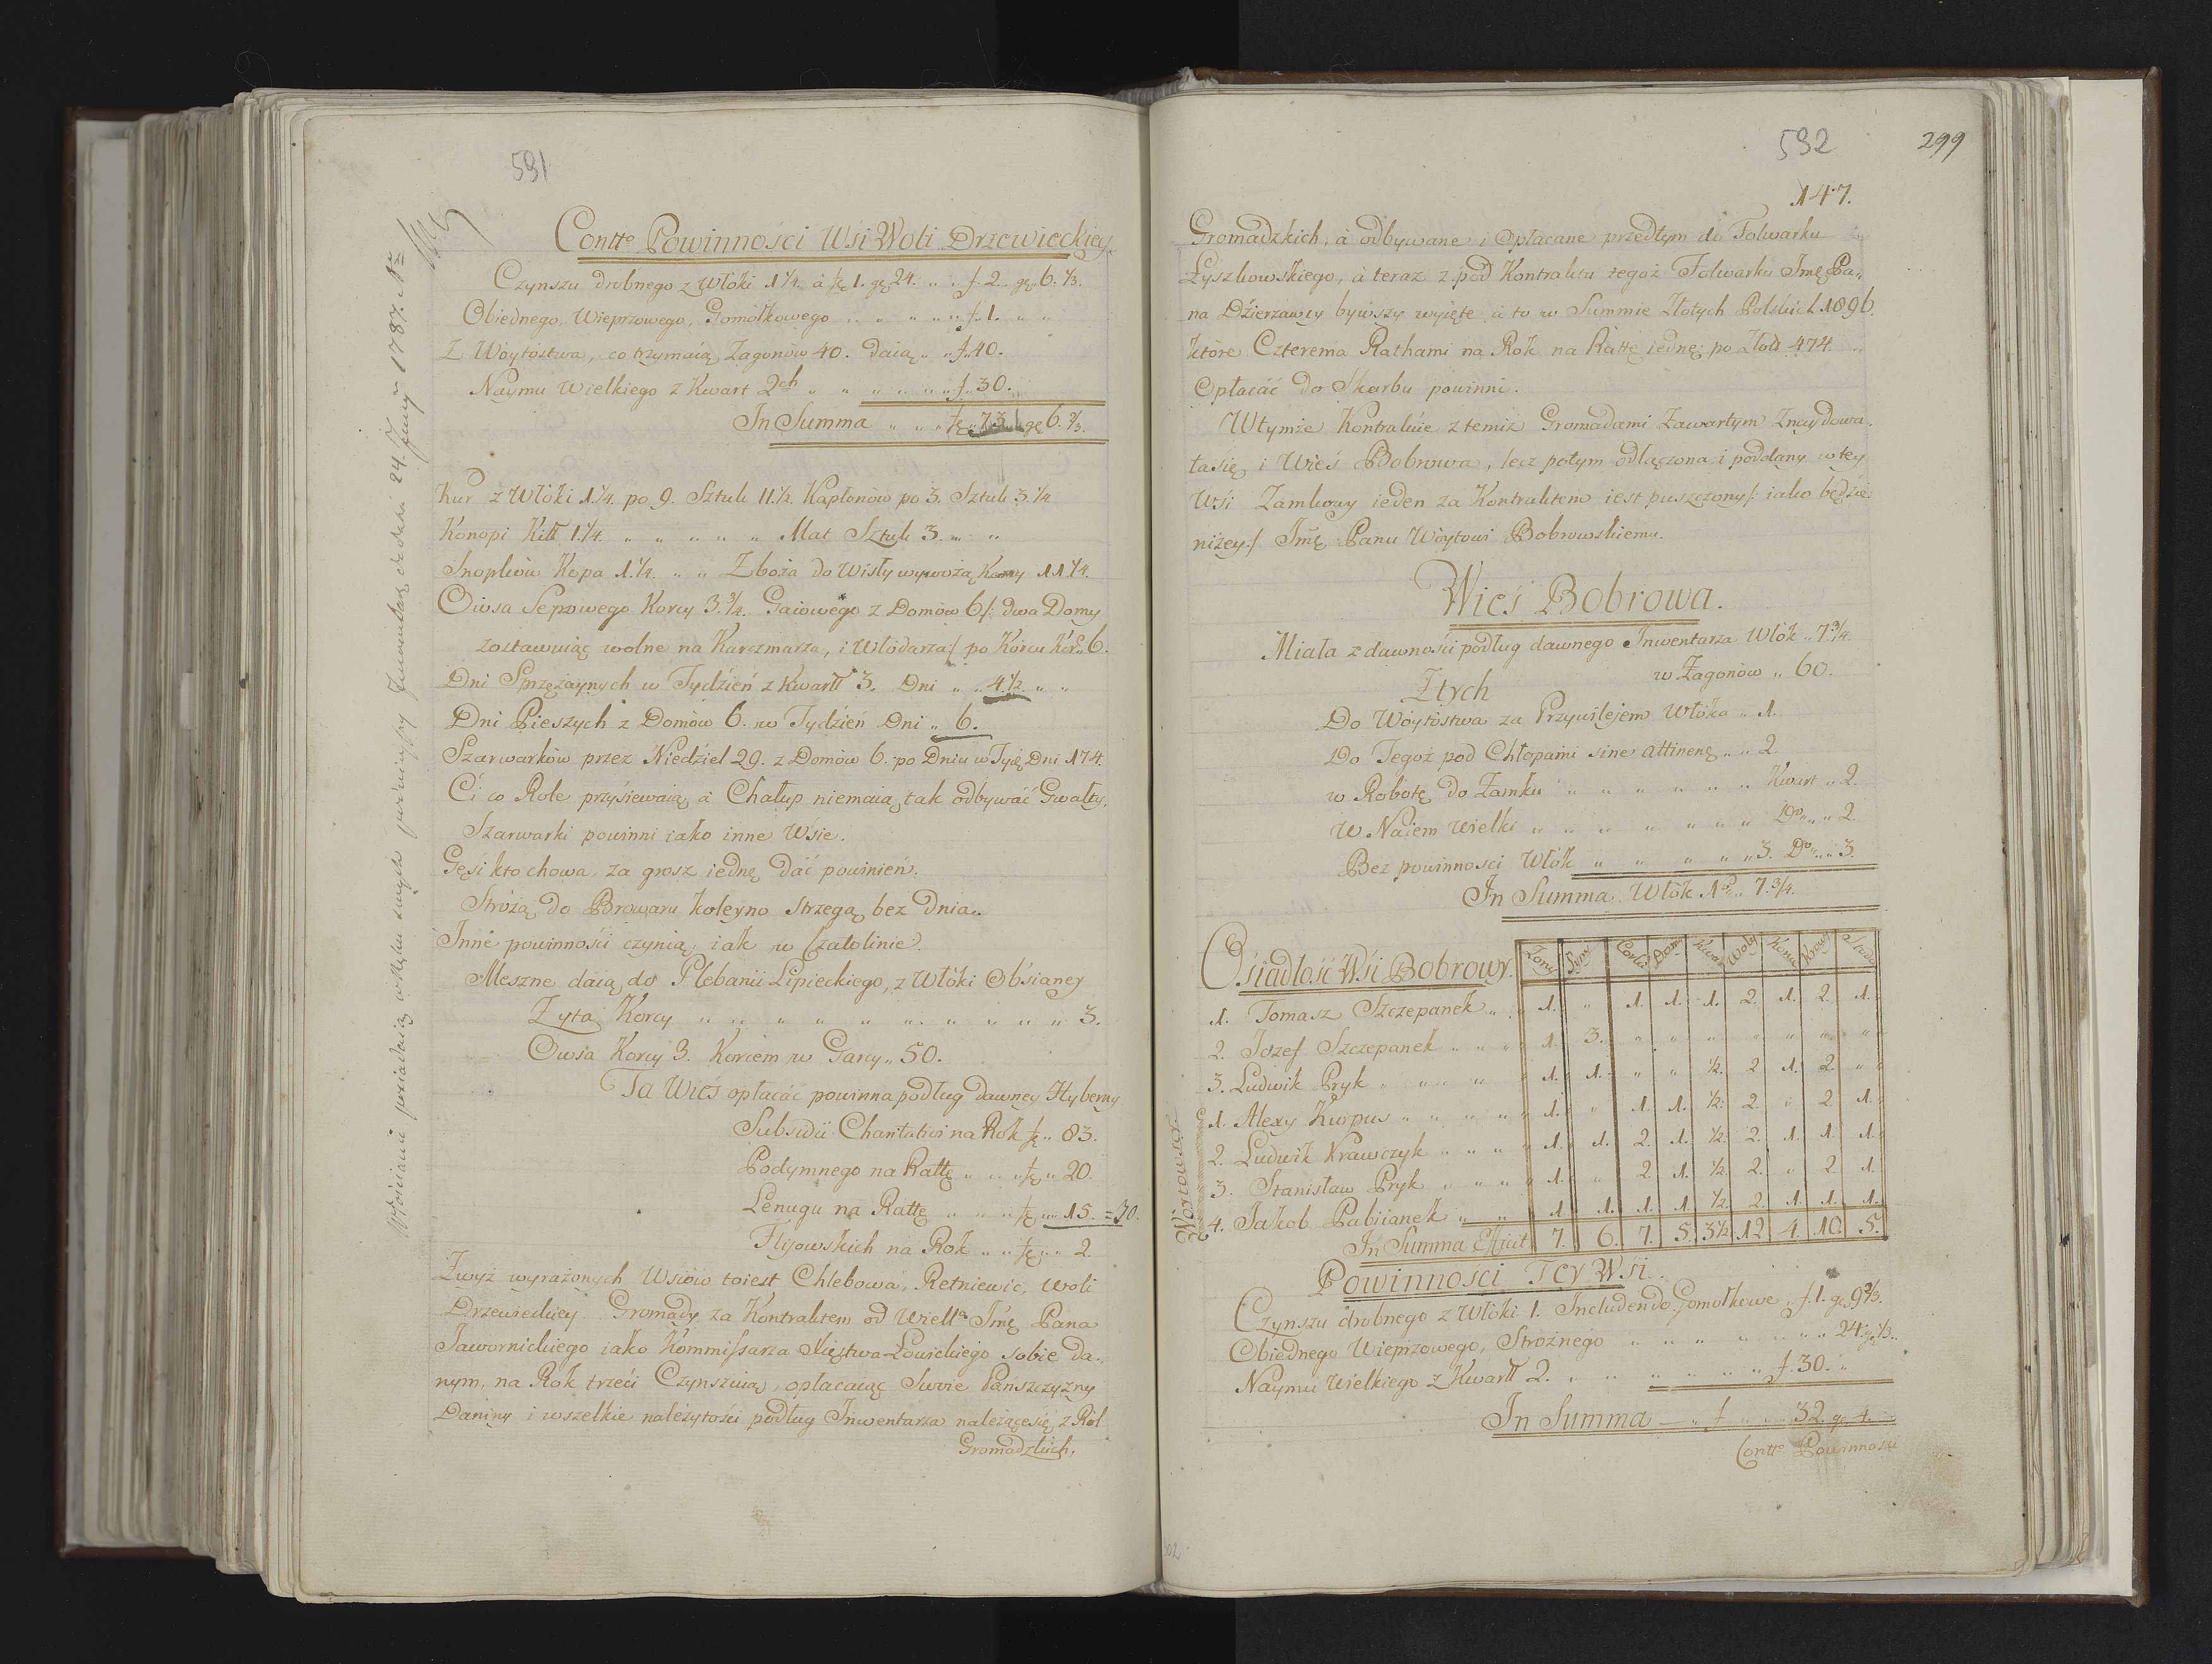 591
Contte Powinnosci Wsi Woli Drzewieckiey.
Czynszu drobnego z Włoki 1¼. à fẜ 1. gẜ 24. „ „ f. 2. gẜ 6.⅓.
Obiednego, Wieprzowego, Gomołkowego „ „ „ „ „ f. 1. „ „
Z Woytostwa, co trzymaią Zagonow 40. daią „ „ f. 40.
Naymu Wielkiego z Kwart 2ch „ „ „ „ „ „ f. 30.
In Summa „ „ „ fẜ „ 73. gẜ 6.
Kur z Włoki 1¼. po 9. Sztuk 11.½. Kapłonow po 3. Sztuk 3.¾
Konopi Kitt 1.¼. „ „ „ „ „ Mat Sztuk 3. „ „
Snopkow Kopa 1.¼. „ „ Zboża do Wisły wywożą Korcy 11.¼.
Owsa Sepowego Korcy 3.¾. Gaiowego z Domow 6/: dwa Domy
zostawuiąc wolne na Karczmarza, i Włodarza:/ po Korcu Kor. 6.
Dni Sprzężaynych w Tydzień z Kwartt 3. Dni „ „ 4.½ „ „
Dni Pieszych z Domow 6. w Tydzień Dni „ 6.
Szarwarkow przez Niedziel 29. z Domow 6. po Dniu w Tydz Dni 174.
Ci co Role przysiewaią à Chałup niemaią, tak odbywać Gwałty,
Szarwarki powinni iako inne Wsie.
Gęsi kto chowa, za grosz iednę dać powinien.
Strożą do Browaru koleyno strzegą bez dnia.
Inne powinności czynią, iak w Czatolinie.
Meszne daią do Plebanii Lipieckiego, z Włoki Obsianey
Zyta Korcy „ „ „ „ „ „ „ „ „ „ 3.
Owsa Korcy 3. Korcem w Garcy „ 50.
Ta Wieś opłacać powinna podług dawney Hyberny
Subsidii Charitativi na Rok fẜ „ 83.
Podymnego na Rattę „ „ „ fẜ „ 20.
Lenugu na Rattę „ „ „ fẜ „ 15. = 30.
Flisowskich na Rok „ „ fẜ „ „ 2.
Zwyż wyrażonych Wsiow toiest Chlebowa, Retniewic, Woli
Drzewieckiey Gromady za Kontraktem od Wielle Jmę Pana
Jawornickiego iako Kommissarza Xięstwa Łowickiego sobie da-
nym, na Rok trzeci Czynszuią, opłacaiąc Swoie Pańszczyzny
Daniny i wszelkie należytości podług Inwentarza należącesię z Rol
Gromadzkich,
592
299
147.
Gromadzkich, à odbywane i Opłacane przedtym do Folwarku
Łyszkowskiego, à teraz z pod Kontraktu tegoż Folwarku Jmę Pa-
na Dzierzawcy bywszy wyięte à to w Summie Złotych Polskich 1896
ktore Czterema Rathami na Rok na Rattę iednę po Złott 474.
Opłacać do Skarbu powinni.
Wtymże Kontrakcie z temiż Gromadami Zawartym Znaydowa-
łasię i Wieś Bobrowa, lecz potym odłączona, i poddany w tey
Wśi Zamkowy ieden za Kontraktem iest puszczony/: iako będzie
niżey:/ Jmę Panu Woytowi Bobrowskiemu.
Wieś Bobrowa.
Miała z dawności podług dawnego Inwentarza Włok „ 7.¾.
w Zagonow „ 60.
Ztych
Do Woytostwa za Przywilejem Włoka „ 1.
Do Tegoż pod Chłopami sine attinenę „ „ 2.
w Robotę do Zamku „ „ „ „ „ „ Kwart „ 2.
W Naiem Wielki „ „ „ „ „ „ „ Do „ „ 2.
Bez powinnosci Włok „ „ „ „ „ 3. Do „ „ 3.
In Summa Włok No „ 7.¾.
Osiadłość Wśi Bobrowy. Zony Syny Corki Domy Kwar Woły Konie Krowy
1. Tomasz Szczepanek „ „ 1. „ 1. 1. 1. 2. 1. 2. 1.
2. Jozef Szczepanek „ „ „ 1. 3. „ „ „ „ „ „ „
3. Ludwik Pryk „ „ „ „ 1. 1. „ „ ½. 2 1. 2. „
Norcowszy
1. Alexy Kurpus „ „ „ „ 1. „ 1. 1. ½. 2. „ 2 1.
2. Ludwik Krawczyk „ „ „ 1. 1. 2. 1. ½. 2. 1. 1. 1.
3. Stanisław Pryk „ „ „ „ 1. „ 2. 1. ½. 2. „ 2. 1.
4. Jakob Pabiianek „ „ 1. 1. 1. 1. ½. 2. 1. 1. 1.
In Summa Efficit 7. 6. 7. 5. 3½. 12 4. 10. 5.
Powinnosci Tey Wśi.
Czynszu drobnego z Włoki 1. Includendo Gomołkowe „ f. 1. gẜ 9⅔.
Obiednego Wieprzowego, Strożnego „ „ „ „ „ „ „ 24.⅓.
Naymu Wielkiego z Kwartt 2. „ „ „ „ „ „ f. 30. „
In Summa — „ f „ „ „ 32. gẜ 4.
Contte Powinnosci